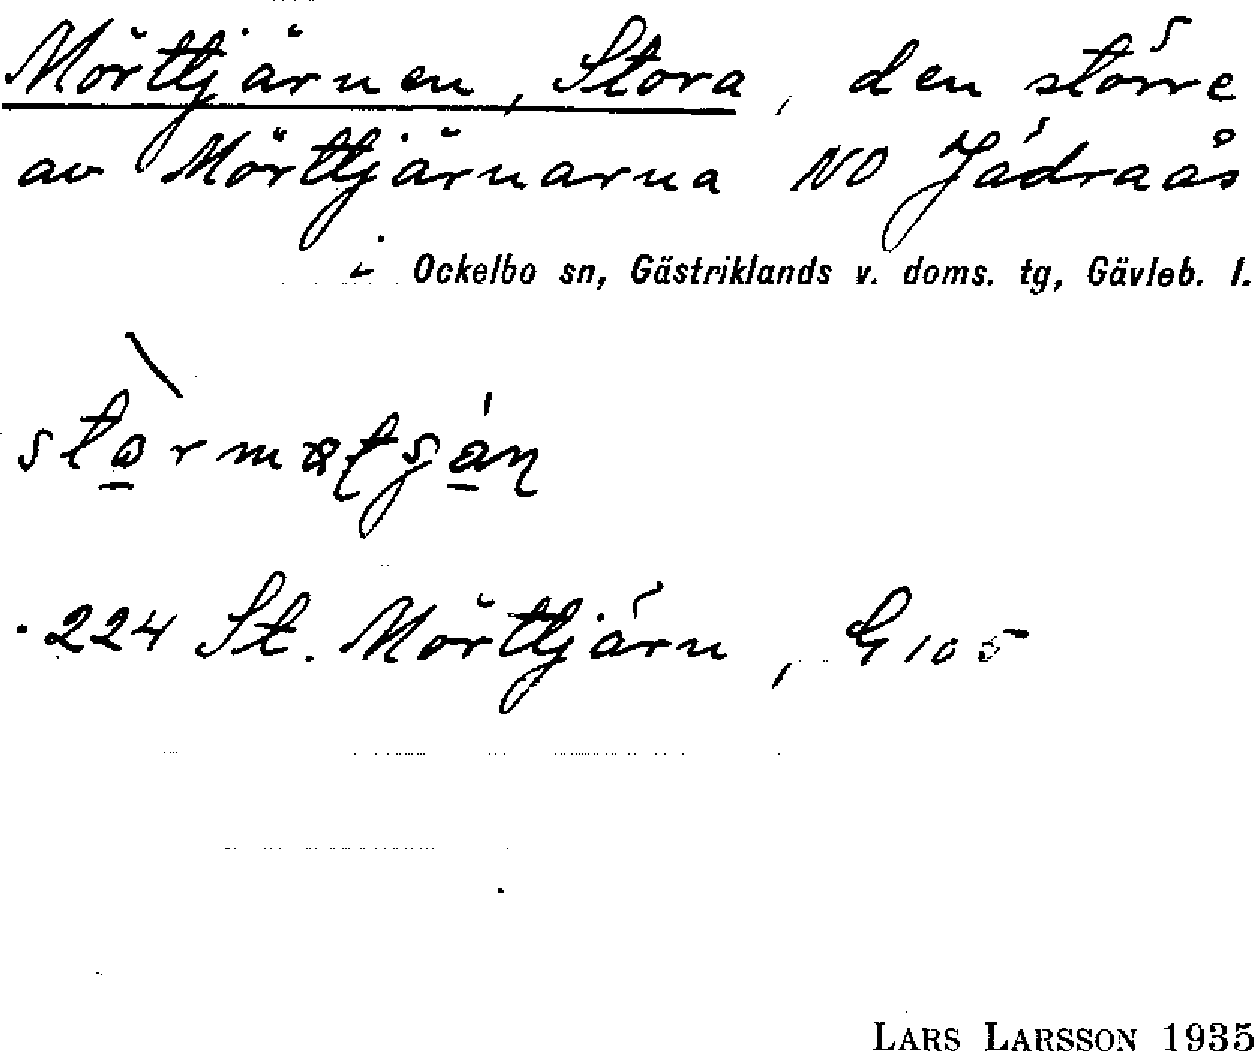 Mörttjärnen, Stora, den större
av Mörttjärnarna NO Jädraås
i Ockelbo sn, Gästriklands v. doms. tg, Gävleb. l.
224 St. Mörttjärn, G 105
LARS LARSSON 1935